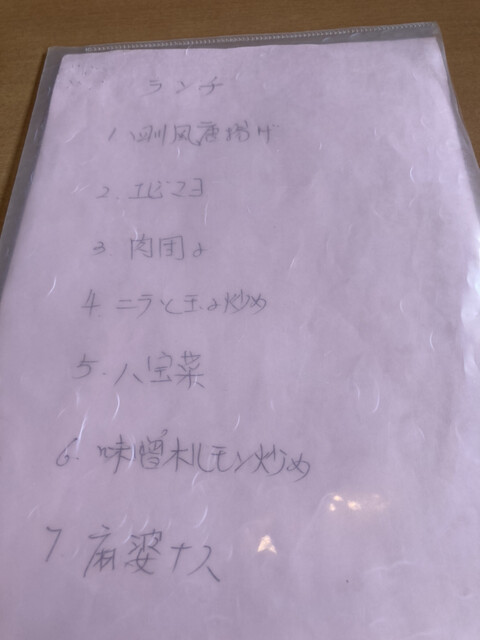 ランチ
1 八訓风唐揚げ
2. エビマヨ
3 肉団子
4. ニラと玉子炒め
5. 八宝菜
6. 味噌ホルモン炒め
7. 麻婆ナス